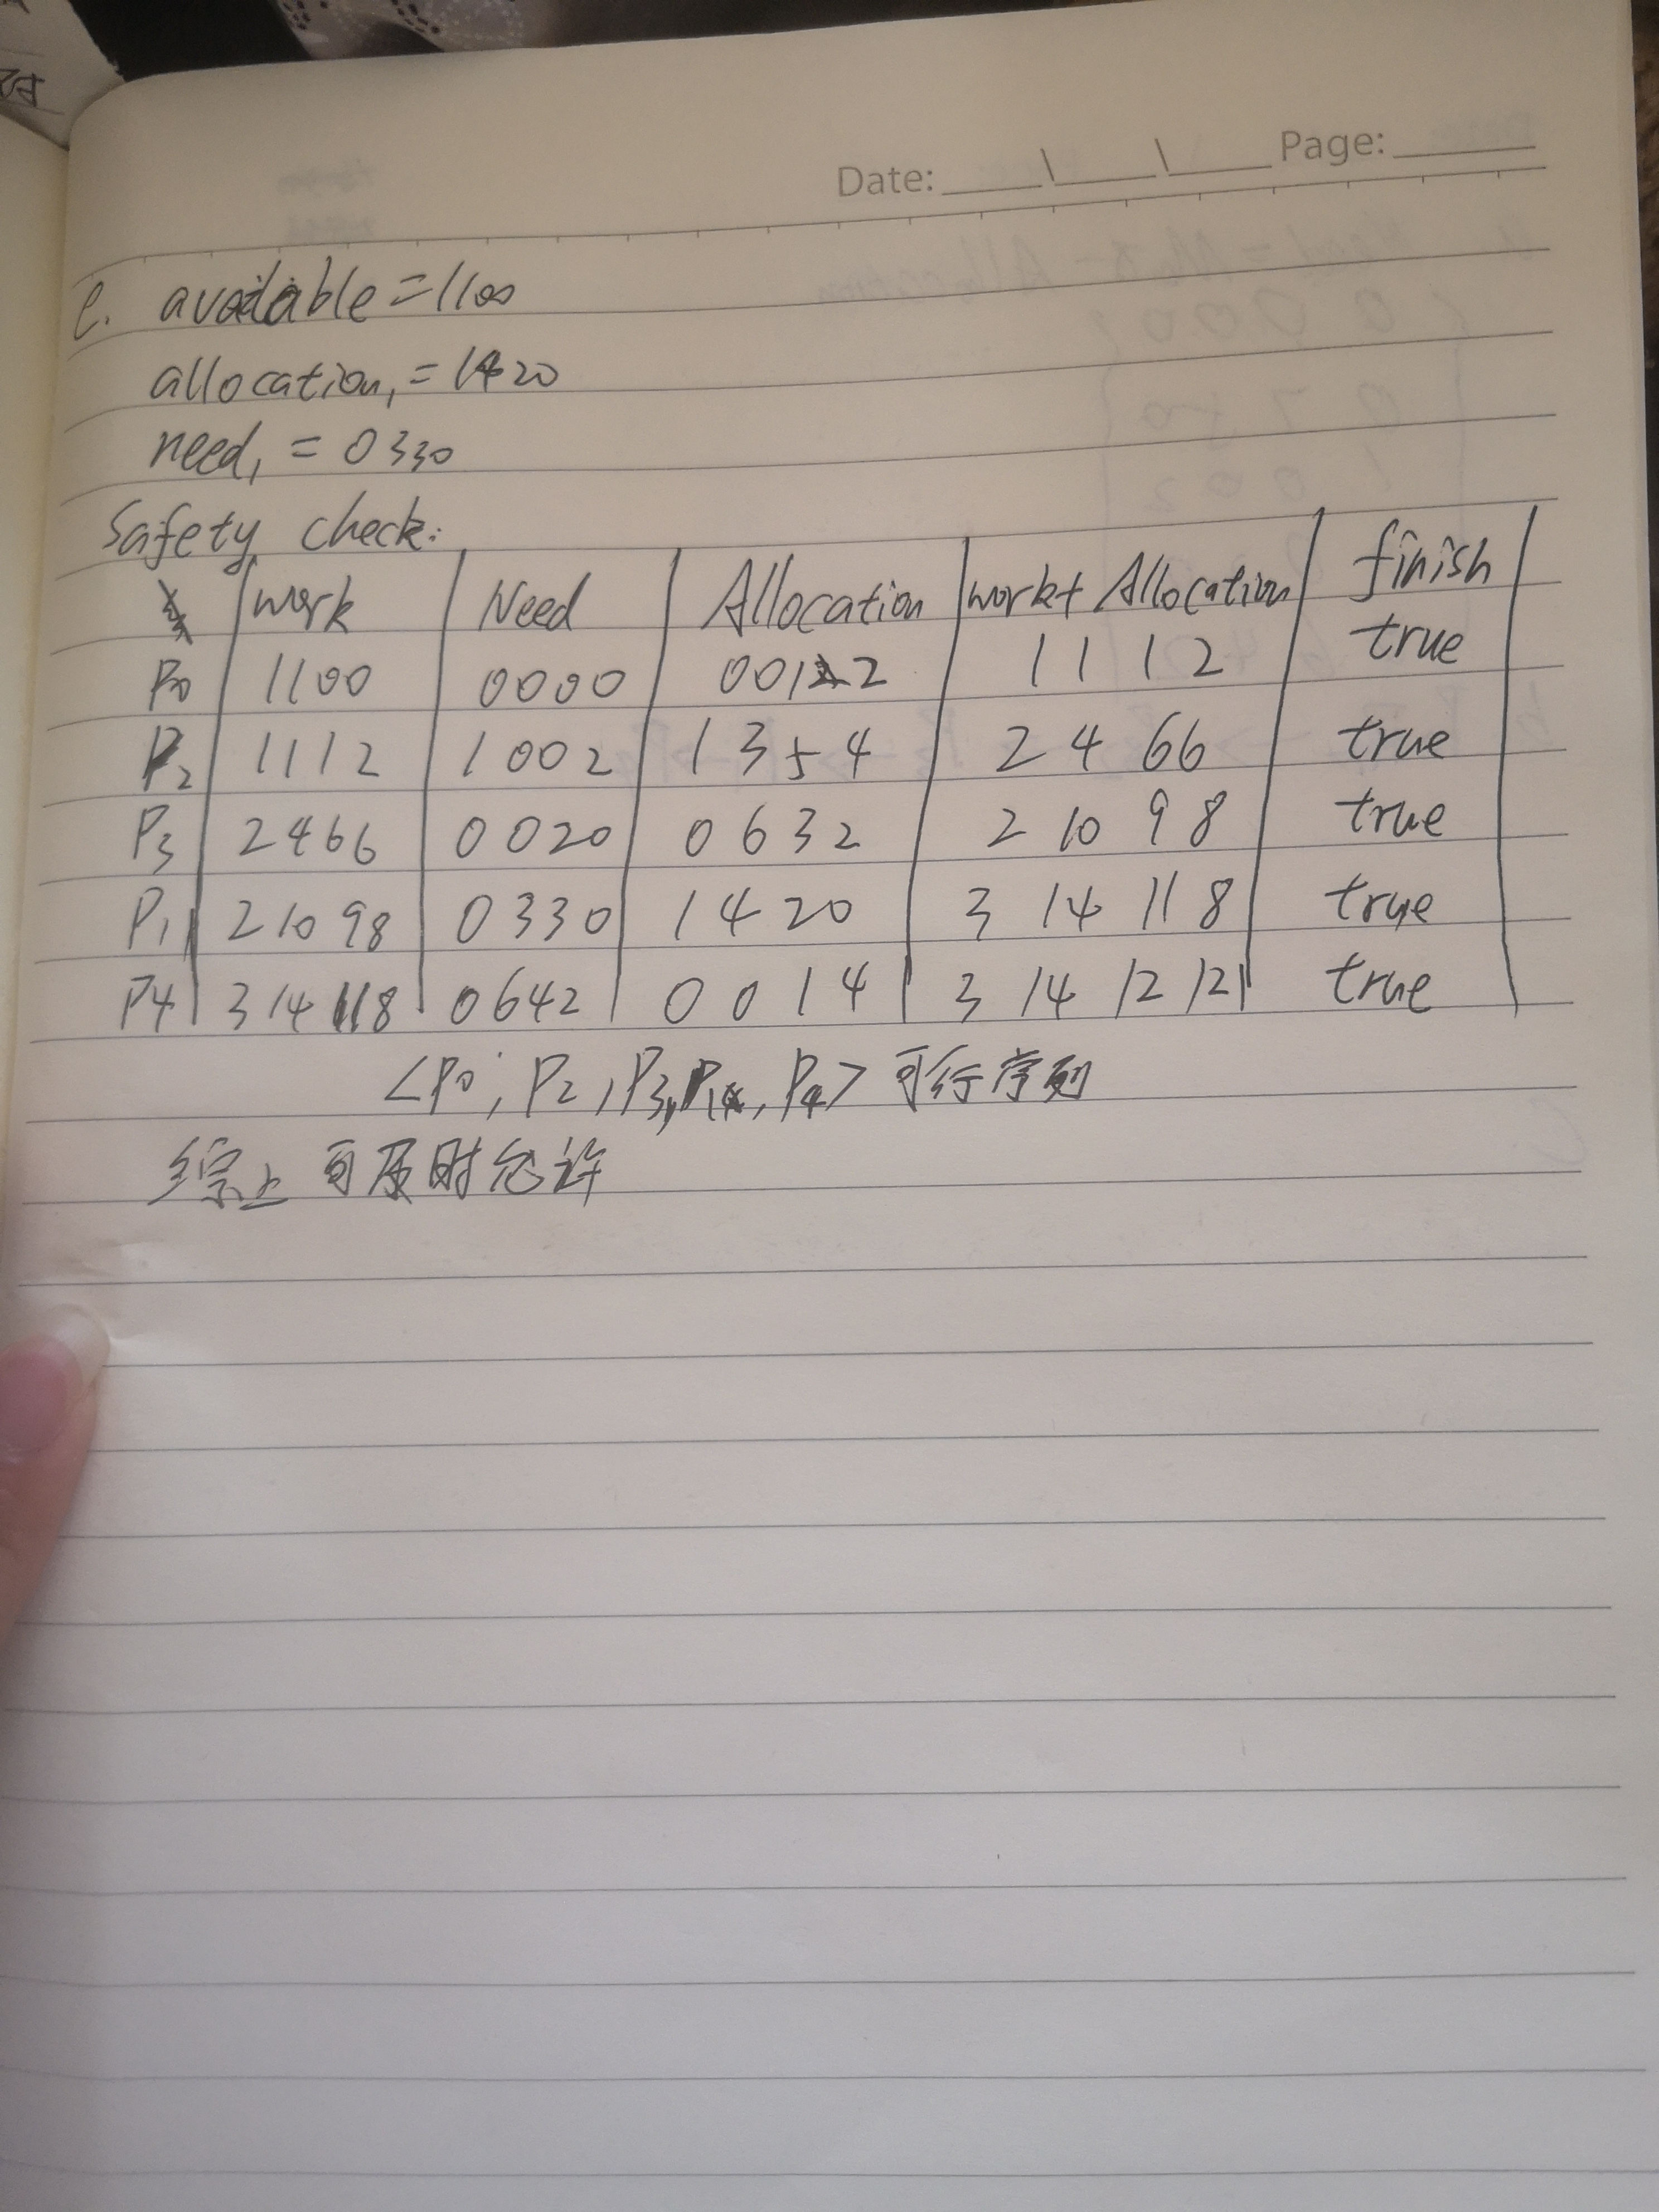 Date: Page:
e. available = 1100
allocation₁ = 1420
need₁ = 0330
Safety check:
work Need Allocation work+Allocation finish
P0 1100 0000 0012 1112 true
P2 1112 1002 1354 2466 true
P3 2466 0020 0632 2 10 9 8 true
P1 2 10 9 8 0330 1420 3 14 11 8 true
P4 3 14 11 8 0642 0014 3 14 12 12 true
<P0, P2, P3, P1, P4> 可行序列
综上可及时允许